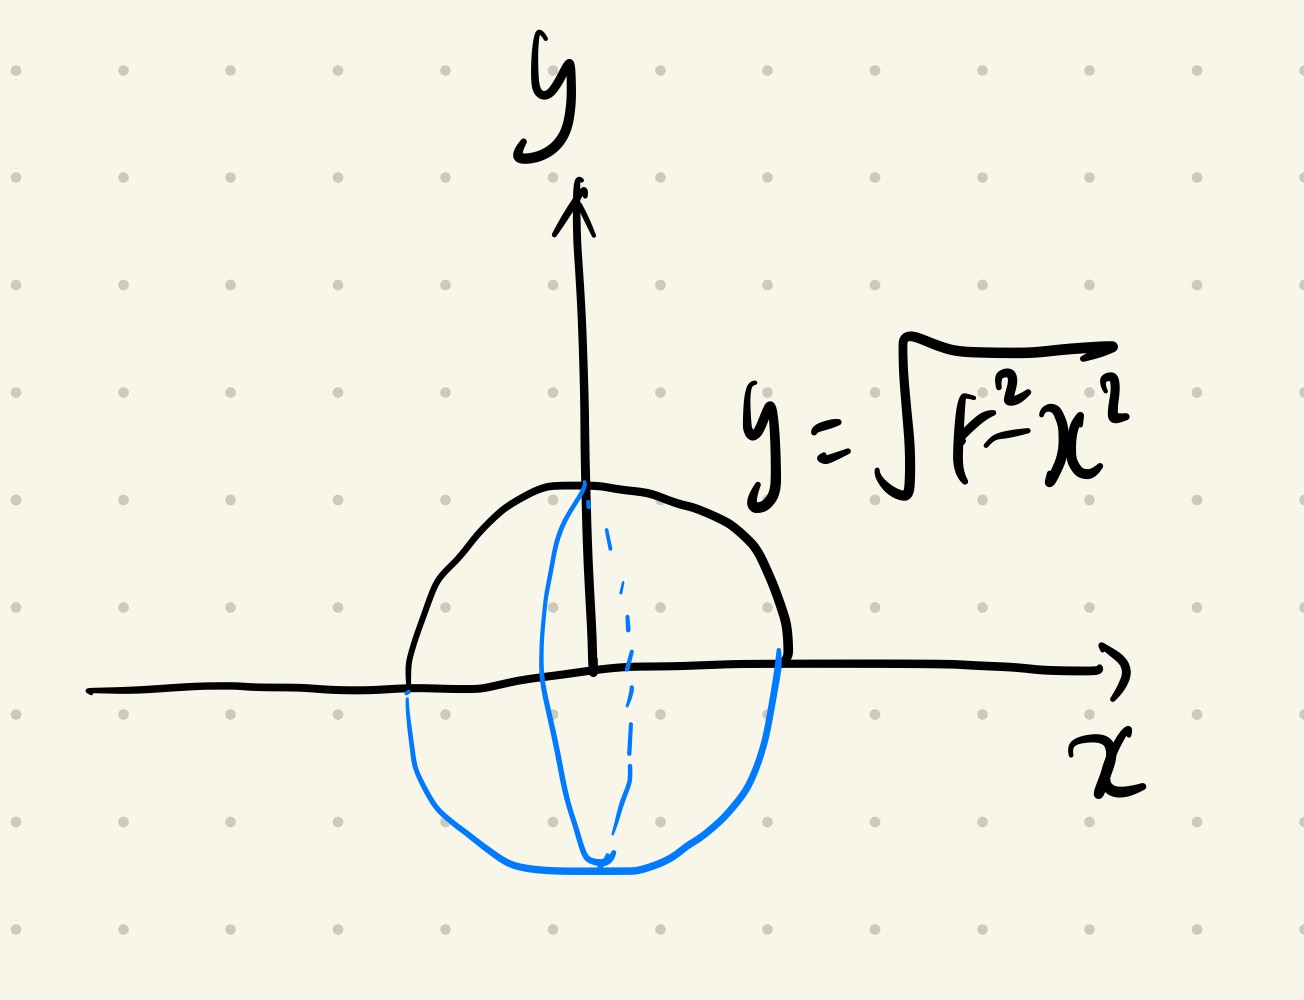 y
y = √(r² - x²)
x